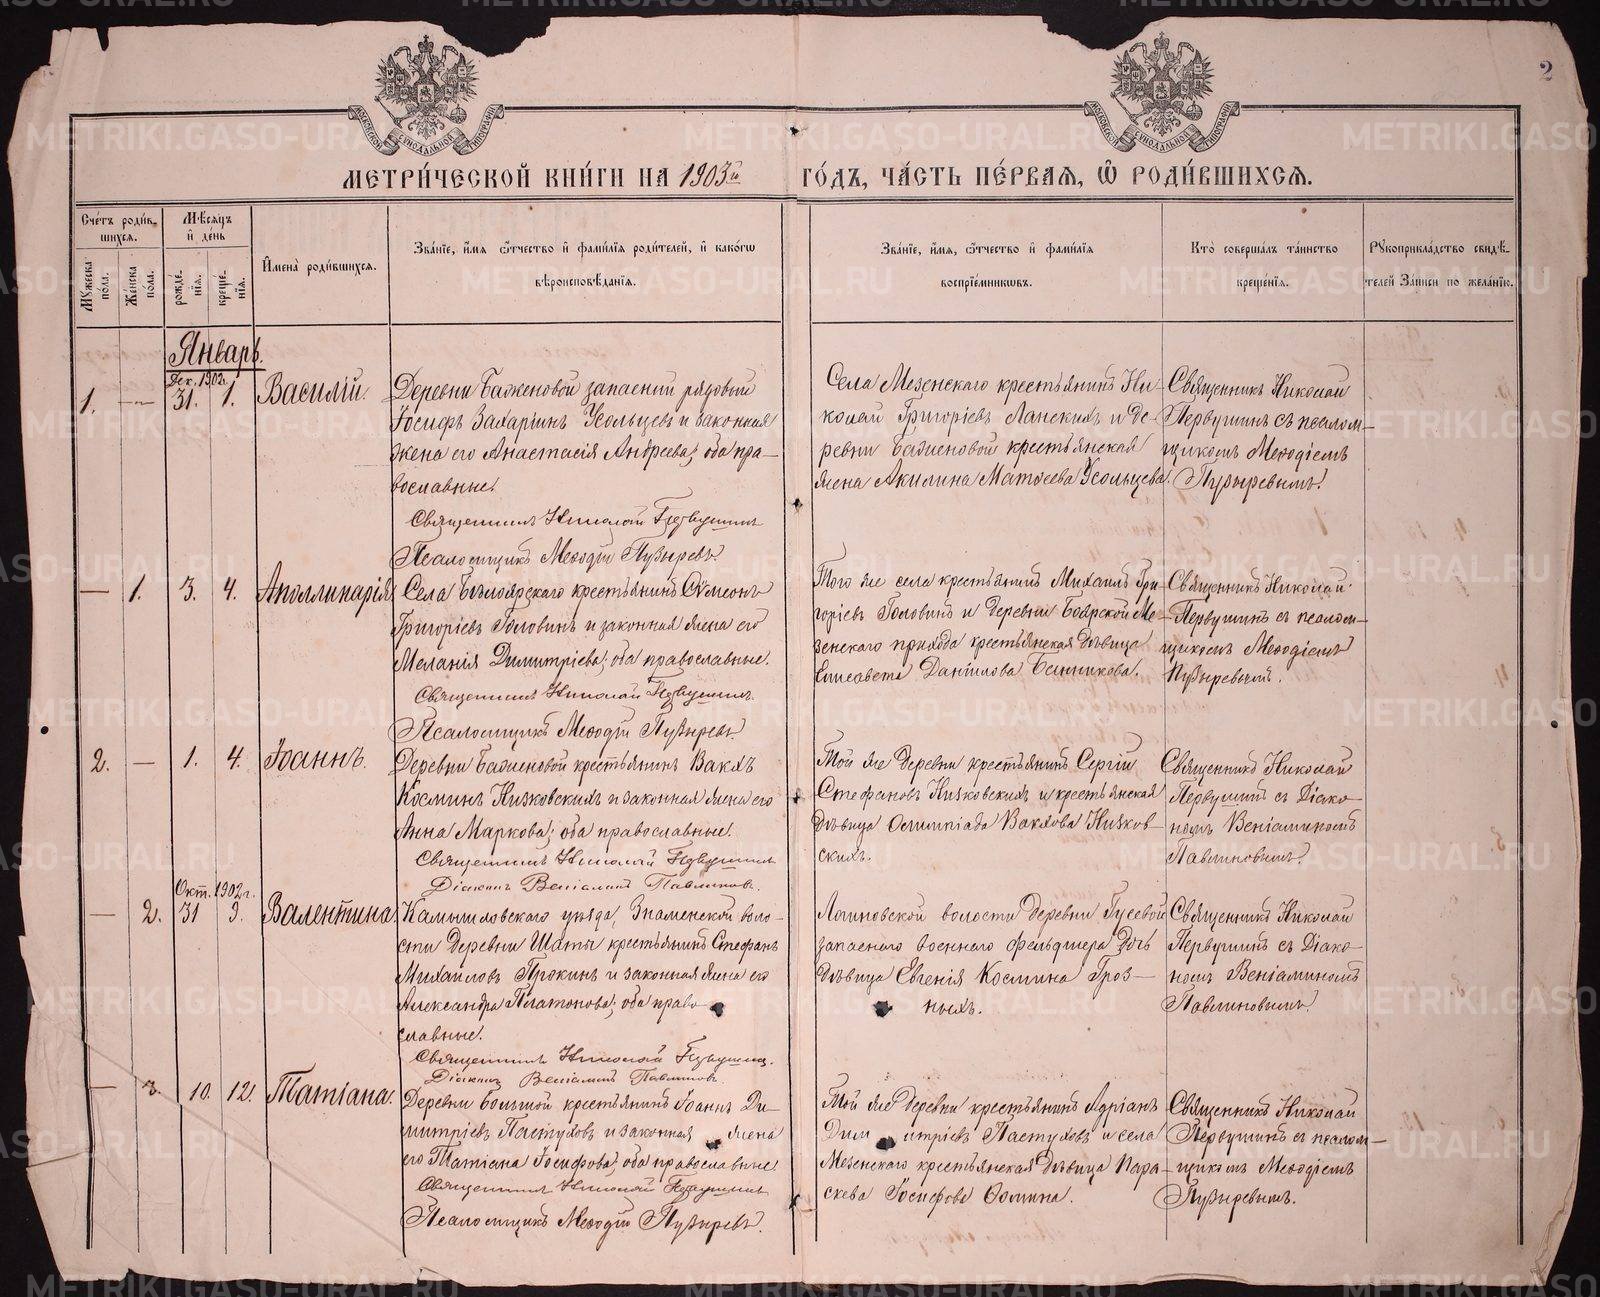 2
МОСКОВСКОЙ СѴНОДАЛЬНОЙ ТИПОГРАФІИ
МОСКОВСКОЙ СѴНОДАЛЬНОЙ ТИПОГРАФІИ
МЕТРИ́ЧЕСКОЙ КНИ́ГИ НА 1903й ГО́ДЪ, ЧА́СТЬ ПЕ́РВАѦ, Ѡ҆ РОДИ́ВШИХСѦ.
Сче́тъ роди́в-
шихсѧ.
Мꙋ́жеска по́ла.
Же́нска по́ла.
Мѣ́сѧцъ
и҆ де́нь
рожде́нїѧ.
креще́нїѧ.
И҆мена̀ роди́вшихсѧ.
Зва́нїе, и҆́мѧ ѻ҆́тчество и҆ фами́лїѧ роди́телей, и҆ како́гѡ
вѣроисповѣ́данїѧ.
Зва́нїе, и҆́мѧ, ѻ҆́тчество и҆ фами́лїѧ
воспрїе́мникѡвъ.
Кто̀ соверша́лъ та́инство
креще́нїѧ.
Рꙋкоприкла́дство свидѣ́-
телей За́писи по жела́нїю.
Январь.
Дек. 1902г.
1. — 31. 1. Василій.
Деревни Баженовой запасный рядовой
Іосифъ Захаринъ Усольцевъ и законная
жена его Анастасія Андреева; оба пра-
вославные.
Священникъ Николай Первушинъ
Псаломщикъ Меѳодій Пузыревъ.
Села Мезенскаго крестьянинъ Ни-
колай Григоріевъ Ланскихъ и де-
ревни Баженовой крестьянская
жена Акилина Матѳеева Усольцева.
Священникъ Николай
Первушинъ съ псалом-
щикомъ Меѳодіемъ
Пузыревымъ.
— 1. 3. 4. Аполлинарія
Села Бѣлоярскаго крестьянинъ Сѵмеонъ
Григоріевъ Головинъ и законная жена его
Меланія Димитріева; оба православные.
Священникъ Николай Первушинъ.
Псаломщикъ Меѳодій Пузыревъ.
Того же села крестьянинъ Михаилъ Гри-
горіевъ Головинъ и деревни Боярской Ме-
зенскаго прихода крестьянская дѣвица
Елисавета Даніилова Банникова.
Священникъ Николай
Первушинъ съ псалом-
щикомъ Меѳодіемъ
Пузыревымъ.
2. — 1. 4. Іоаннъ.
Деревни Баженовой крестьянинъ Вакхъ
Косминъ Низковскихъ и законная жена его
Анна Маркова; оба православные.
Священникъ Николай Первушинъ
Діаконъ Веніаминъ Павлиновъ.
Той же деревни крестьянинъ Сергій
Стефановъ Низковскихъ и крестьянская
дѣвица Олимпіада Вакхова Низков-
скихъ.
Священникъ Николай
Первушинъ съ Діако-
номъ Веніаминомъ
Павлиновымъ.
Окт. 1902г.
— 2. 31 9. Валентина
Камышловскаго уѣзда, Знаменской воло-
сти деревни Шаты крестьянинъ Стефанъ
Михаиловъ Прокинъ и законная жена его
Александра Платонова; оба право-
славные.
Священникъ Николай Первушин.
Діаконъ Веніаминъ Павлиновъ.
Логиновской волости деревни Гусевой
запаснаго военнаго фельдшера дочь
дѣвица Евгенія Космина Гроз-
ныхъ.
Священникъ Николай
Первушинъ съ Діако-
номъ Веніаминомъ
Павлиновымъ.
— 3. 10. 12. Татіана.
Деревни Большой крестьянинъ Іоаннъ Ди-
митріевъ Пастуховъ и законная жена
его Татіана Іосифова; оба православные.
Священникъ Николай Первушинъ
Псаломщикъ Меѳодій Пузыревъ.
Той же деревни крестьянинъ Адріанъ
Димитріевъ Пастуховъ и села
Мезенскаго крестьянская дѣвица Пара-
скева Іосифова
Священникъ Николай
Первушинъ съ псалом-
щикомъ Меѳодіемъ
Пузыревымъ.
METRIKI.GASO-URAL.RU